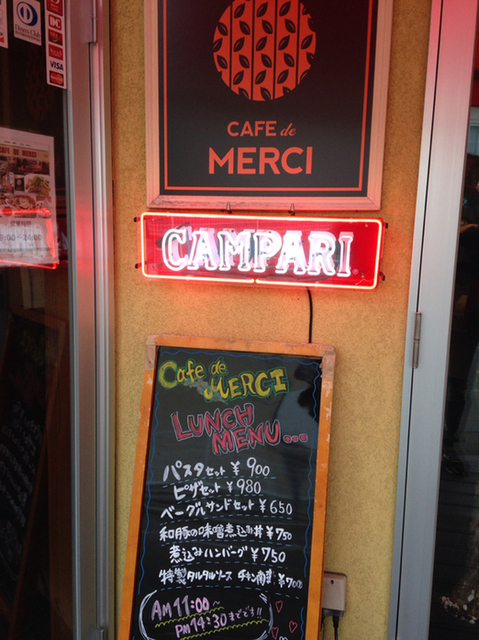 Diners Club
VISA
CAFE DE MERCI
CAFE de
MERCI
CAMPARI
Cafe de
MERCI
LUNCH
MENU...
パスタセット ¥900
ピザセット ¥980
ベーグルサンドセット ¥650
和豚の味噌煮込み丼 ¥750
煮込みハンバーグ ¥750
特製タルタルソース チキン南蛮 ¥700
AM 11:00~
PM 14:30までです!!